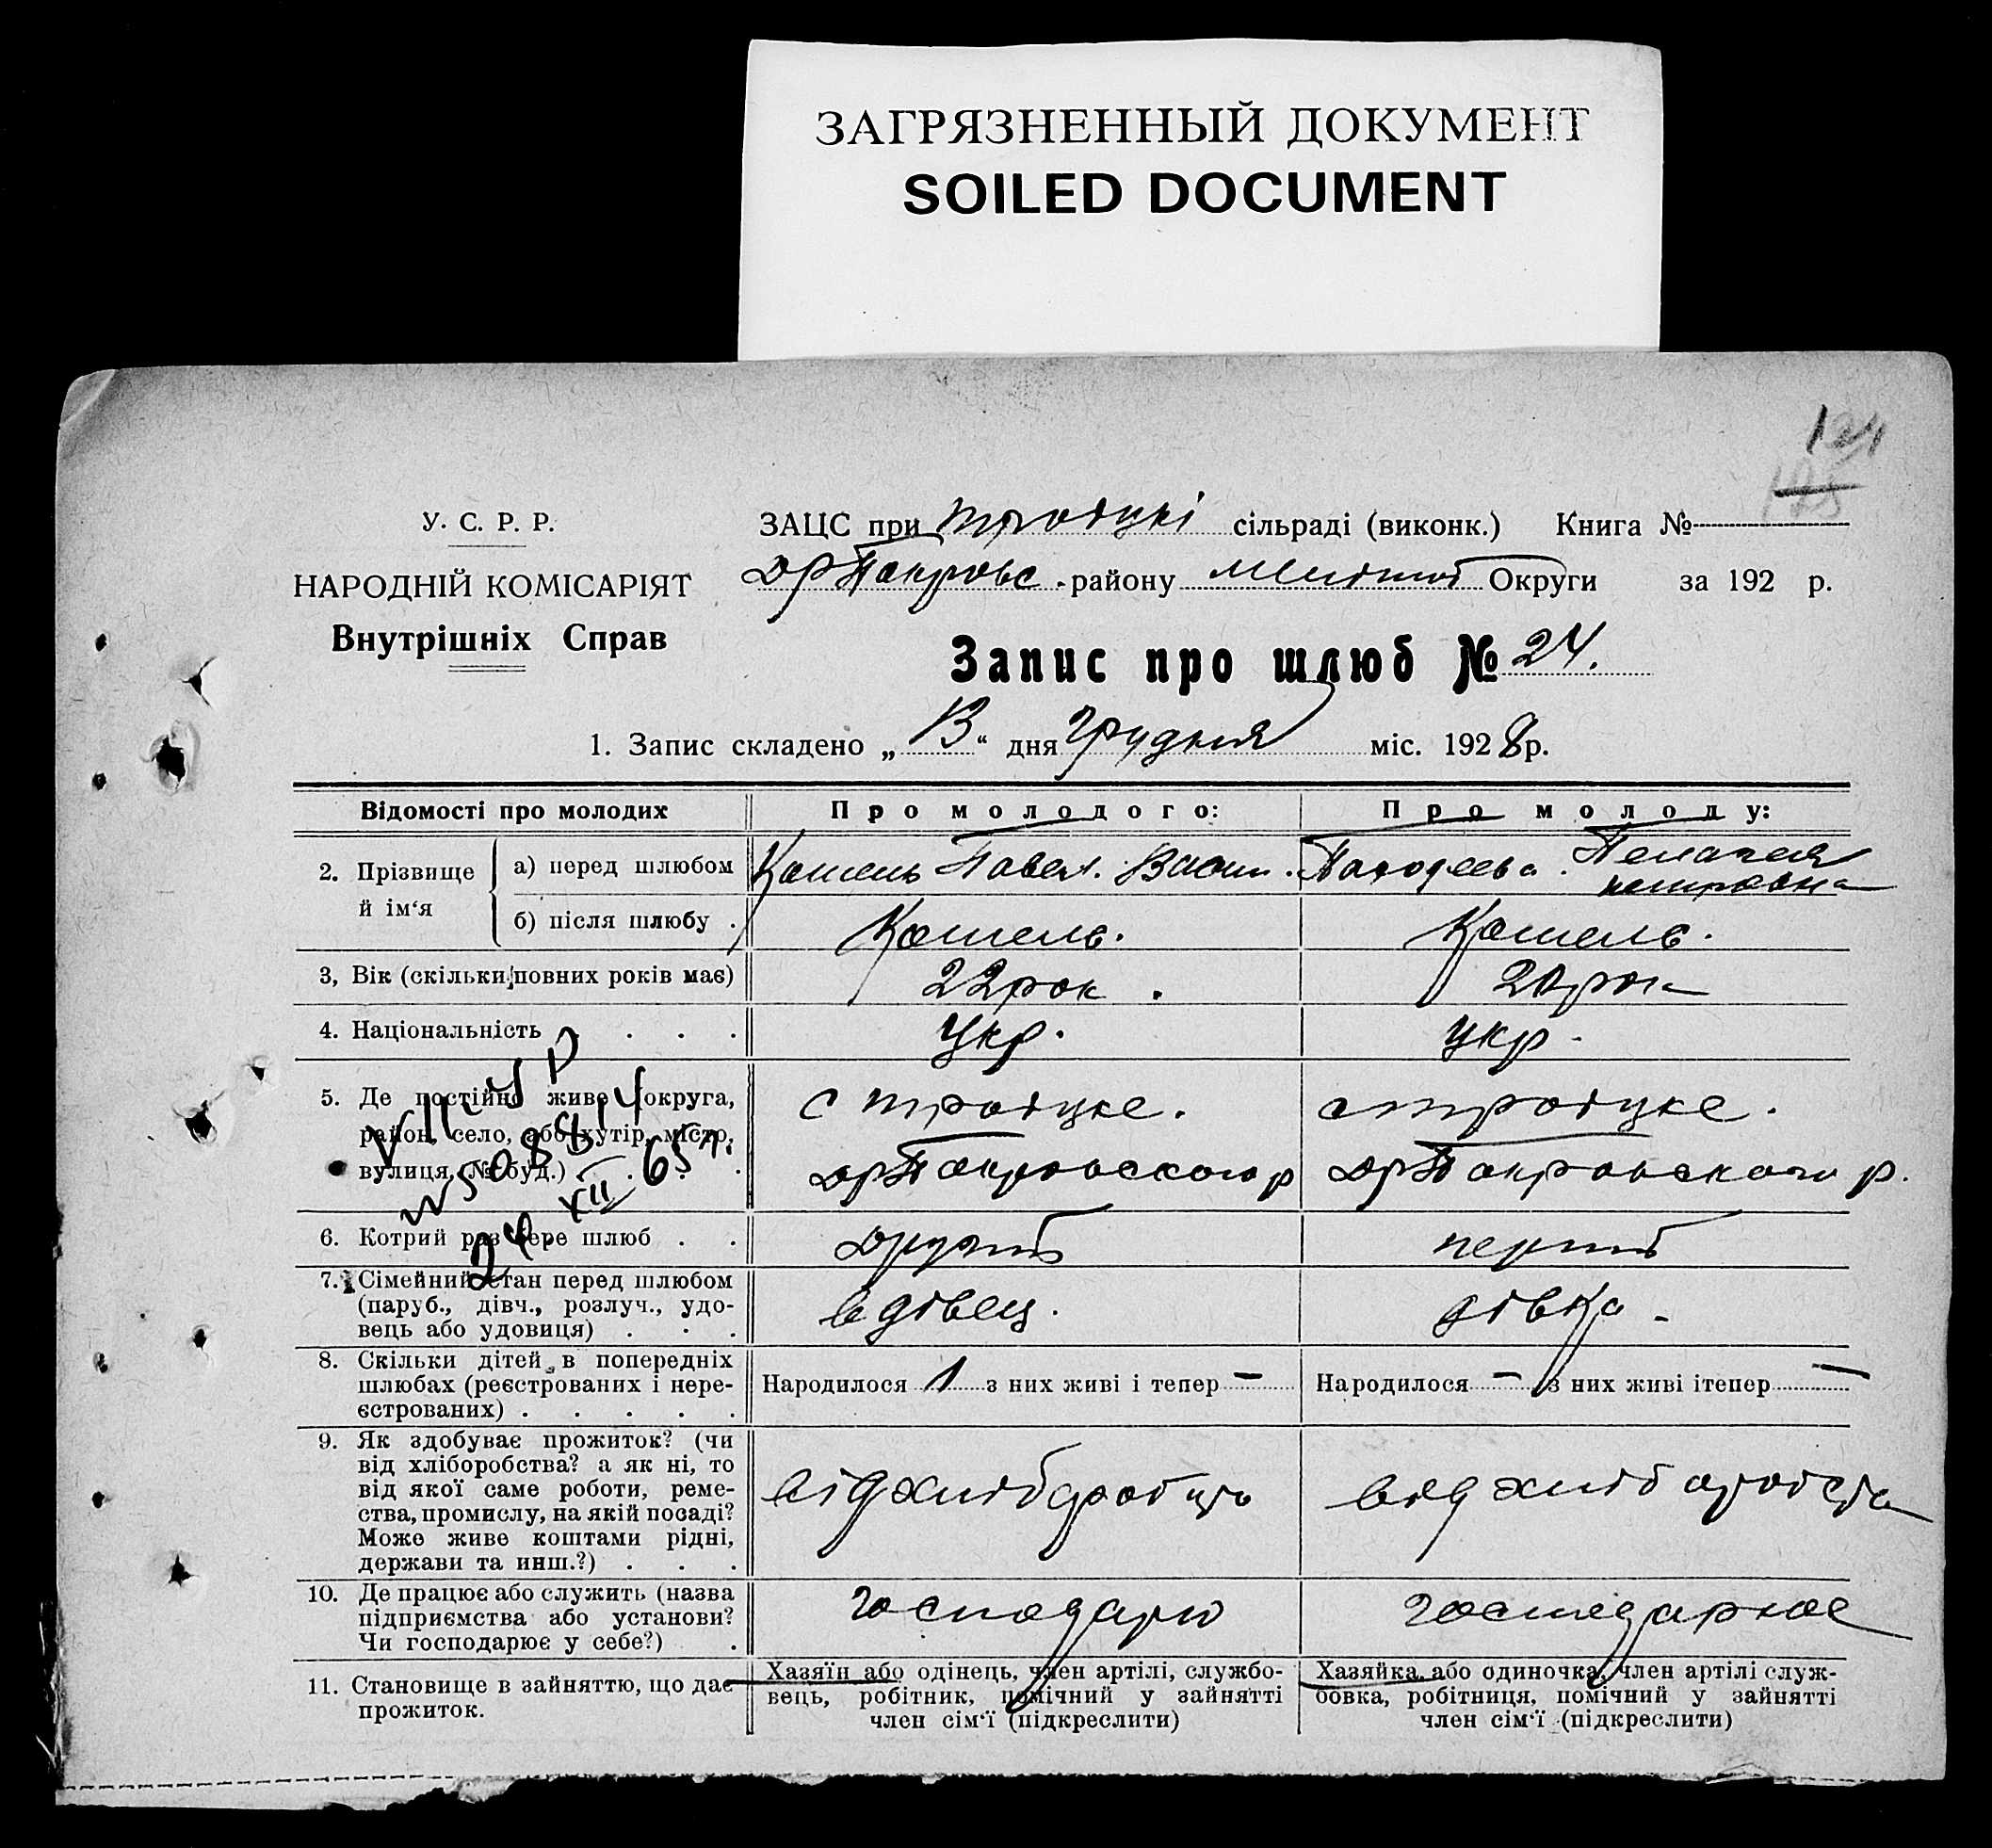 ЗАГРЯЗНЕННЫЙ ДОКУМЕНТ
SOILED DOCUMENT
У. С. Р. Р.
НАРОДНІЙ КОМІСАРІЯТ
Внутрішніх Справ
ЗАЦС при троіцкі сільраді (виконк.) Книга №
району Округи за 192 р.
Запис про шлюб № 24.
1. Запис складено „ 13 “ дня Грудня міс. 1928 р.
Відомості про молодих
Про молодого:
Про молоду:
2. Прізвище й ім‘я
а) перед шлюбом
Кошель Павел. Васил.
Пелагея
петровна
б) після шлюбу .
Кошель.
Кошель.
3, Вік (скільки повних років має)
22 рок.
20 рок
4. Національність . . .
Укр.
укр.
5. Де постійно живе (округа,
район, село, або хутір, місто,
вулиця, № буд.) . . .
с троіцке.
с троіцке.
ДрПокровского р
ДрПокровского р.
24 XII 65 г.
6. Котрий раз бере шлюб . .
другий
перший
7. Сімейний стан перед шлюбом
(паруб., дівч., розлуч., удо-
вець або удовиця) . . .
вдівец.
дівка
8. Скільки дітей в попередніх
шлюбах (реєстрованих і нере-
єстрованих) . . . . .
Народилося 1 з них живі і тепер —
Народилося — з них живі ітепер —
9. Як здобуває прожиток? (чи
від хліборобства? а як ні, то
від якої саме роботи, реме-
ства, промислу, на якій посаді?
Може живе коштами рідні,
держави та инш.?) . . .
10. Де працює або служить (назва
підприємства або установи?
Чи господарює у себе?) .
господарю
господарює
11. Становище в зайняттю, що дає
прожиток.
Хазяїн або одінець, член артілі, службо-
вець, робітник, помічний у зайнятті
член сім‘ї (підкреслити)
Хазяйка або одиночка, член артілі служ-
бовка, робітниця, помічний у зайнятті
член сім‘ї (підкреслити)